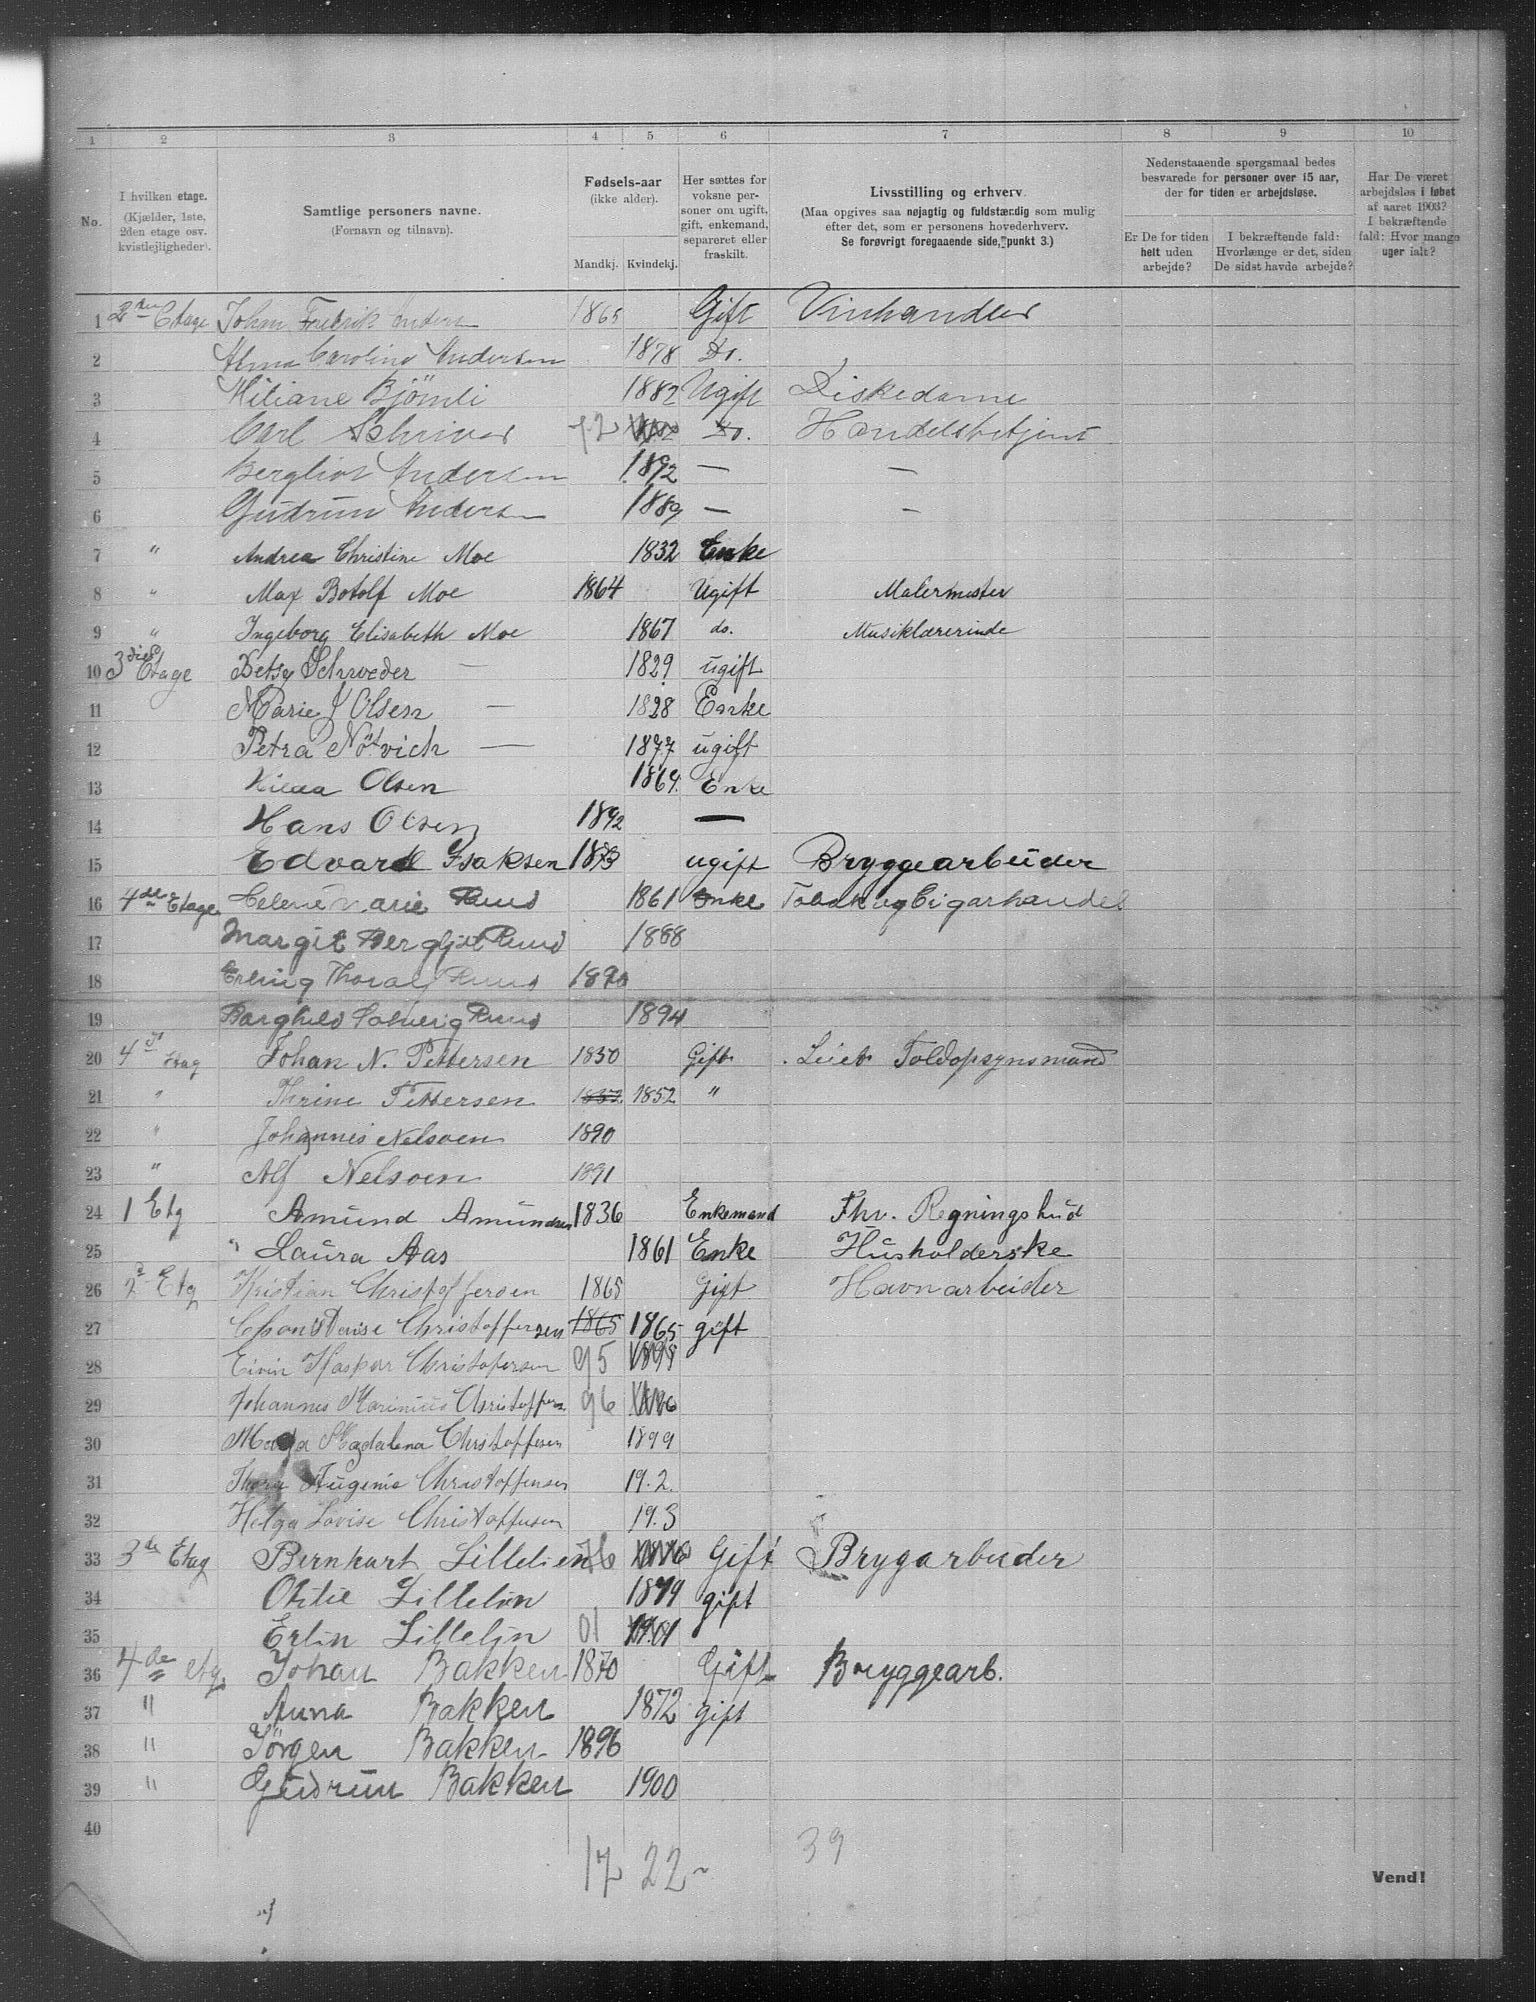 1 2 3 4 5 6 7 8 9 10
No.
I hvilken etage. (Kjælder, 1ste, 2den etage osv. kvistlejligheder).
Samtlige personers navne. (Fornavn og tilnavn).
Fødsels-aar (ikke alder).
Mandkj. Kvindekj.
Her sættes for voksne personer om ugift, gift, enkemand, separeret eller fraskilt.
Livsstilling og erhverv. (Maa opgives saa nøjagtig og fuldstændig som mulig efter det, som er personens hovederhverv. Se forøvrigt foregaaende side, punkt 3.)
Nedenstaaende spørgsmaal bedes besvarede for personer over 15 aar, der for tiden er arbejdsløse.
Er De for tiden helt uden arbejde?
I bekræftende fald: Hvorlænge er det, siden De sidst havde arbejde?
Har De været arbejdsløs i løbet af aaret 1903? I bekræftende fald: Hvor mange uger ialt?
1 2den Etage Johan Fredrik Anders 1865 Gift Vinhandler
2 Alma Caroline Andersen 1878 Do.
3 Miliane Bjömli 1882 Ugift Diskedame
4 Carl Schriver 72 Do. Handelsbetjent
5 Bergliot Andersen 1892 — —
6 Gudrun Andersen 1889 — —
7 " Andrea Christine Moe 1832 Enke
8 " Max Botolf Moe 1864 Ugift Malermester
9 " Ingeborg Elisabeth Moe 1867 do. Musiklærerinde
10 3die Etage Betsy Schrøeder — 1829 ugift
11 Marie J Olsen — 1828 Enke
12 Petra Nötvich — 1877 ugift
13 Olsen 1864. Enke
14 Hans Olsen 1892 —
15 Edvard Isaksen 1873 ugift Bryggearbeider
16 4de Etage Helene Marie Ruud 1861 Enke Tobak og Cigarhandel
17 Margit Bergljot Ruud 1888
18 Erling Thoralf Ruud 1890
19 Borghild Solveig Ruud 1894
20 4d Etag Johan N. Pettersen 1850 Gift Toldopsynsmand
21 " Thrine Pettersen 1852 1852 "
22 " Johannes Nelsoen 1890
23 " Alf Nelsoen 1891
24 1 Etg Amund Amundsen 1836 Enkemand Fhv. Regningsbud
25 " Laura Aas 1861 Enke Husholderske
26 2 Etg Kristian Christoffersen 1865 Gift Havnarbeider
27 Christoffersen 1865 1865 gift
28 Eivin Kaspar Christofersen 95 1895
29 Johannes Marinius Christoffersen 96
30 Magda Magdalena Christoffersen 1899
31 Thora Augenie Christoffensen 19.2.
32 Helga Lovise Christoffersen 19.3
33 3de Etag Bernhart Lillelien 76 Gift Brygarbeider
34 Otilie Lillelin 1879 gift
35 Erlin Lillelin 01 1901
36 4de etg. Johan Bakken 1870 Gift Bryggearb.
37 " Anna Bakken 1872 gift
38 " Jörgen Bakken 1896
39 " Gudrun Bakken 1900
40
17 22 39
Vend!